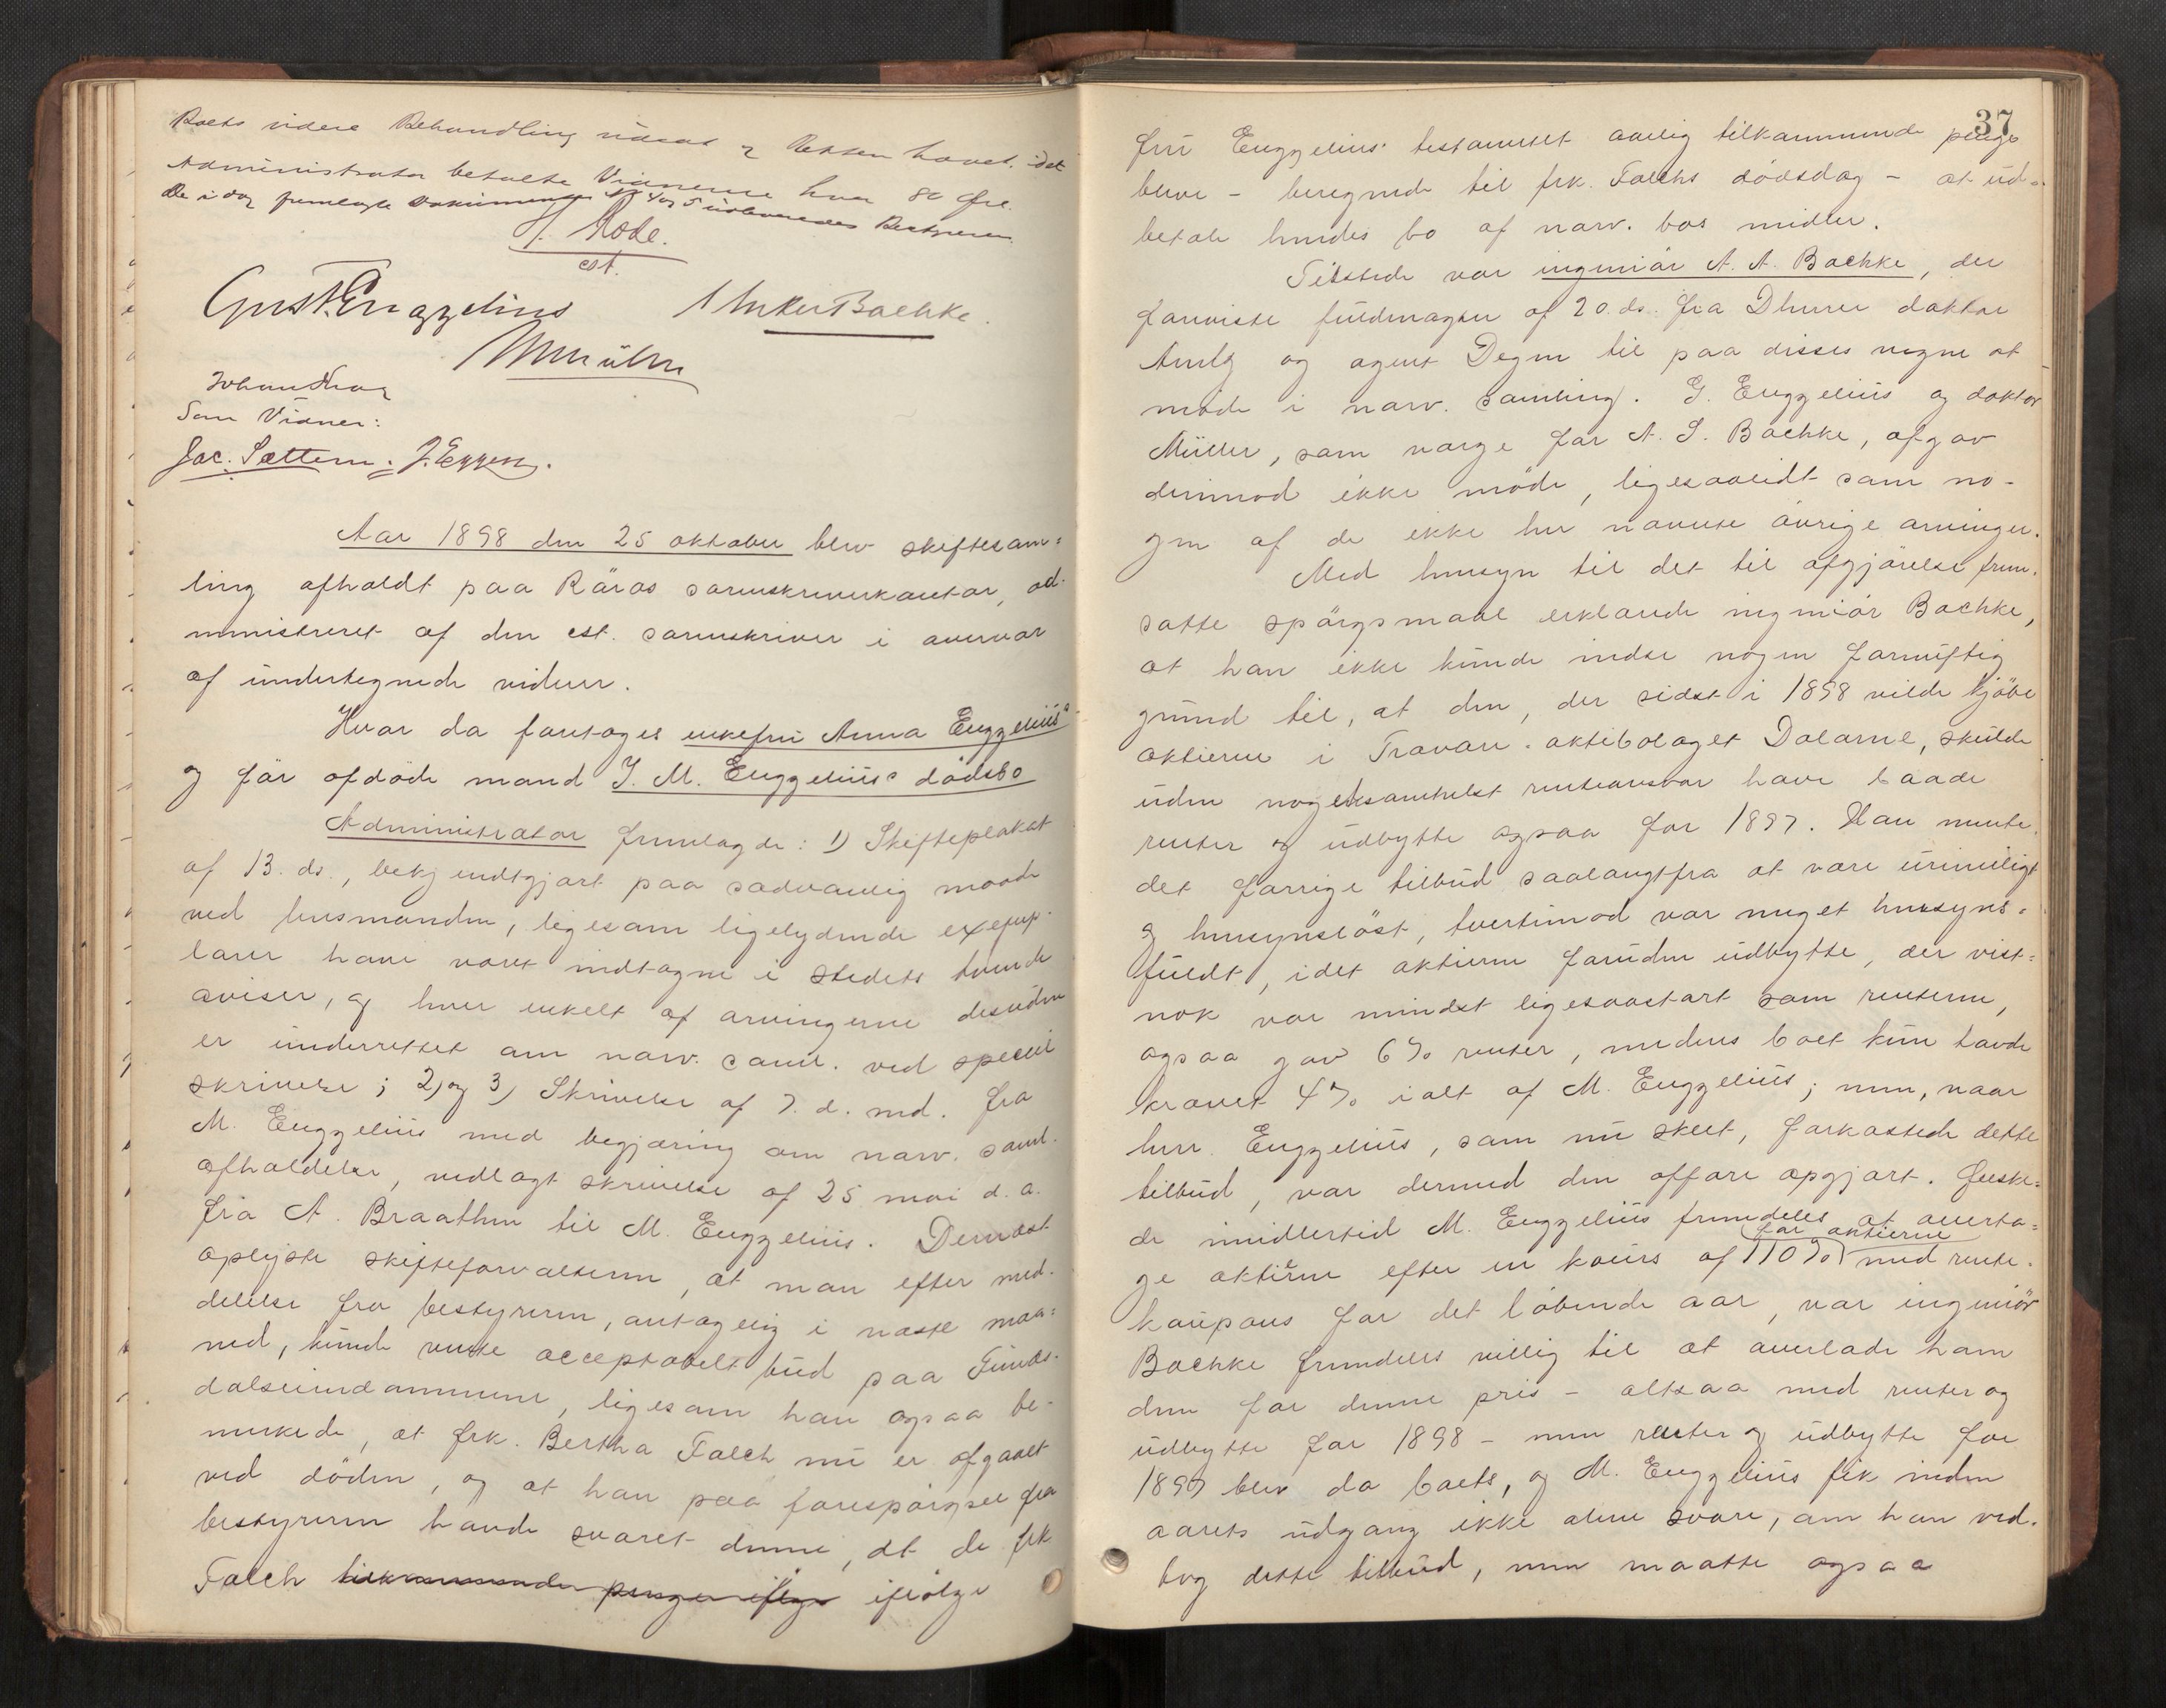 Boets videre Behandling udsat & Retten hævet. idet
Administrator betalte Vidnerne hver 80 Øre.
De i dag fremlagte Dokumenter No 4 og 5 udleveredes Bestyreren.
J. Rode.
cst.
Gust. Enggelius AnkerBachke.
Müller
Johan Thax
Som Vidner:
Jac. Sættem. J. Eggen.
Aar 1898 den 25 oktober blev skiftesam=
ling afholdt paa Röros sorenskriverkontor, ad-
ministreret af den cst. sorenskriver i overvær
af undertegnede vidner.
Hvor da foretoges enkefru Anna Enggelius's
og før afdöde mand J. M. Enggelius's dödsbo
Administrator fremlagde: 1) Skifteplakat
af 13. ds., bekjendtgjort paa sædvanlig maade
ved lensmanden, ligesom ligelydende exemp-
larer have været indtagne i stedets tvende
aviser, og hver enkelt af arvingerne desuden
er underrettet om nærv. saml. ved speciel
skrivelse; 2) og 3) Skrivelse af 7. d. md. fra
M. Enggelius med begjæring om nærv. saml.
afholdelse, vedlagt skrivelse af 25 mai d. a.
fra A. Braathen til M. Enggelius. Dernæst
oplyste skifteforvalteren, at man efter med-
delelse fra bestyreren, antagelig i næste maa=
ned, kunde vente acceptabelt bud paa Tunds-
dalseiendommene, ligesom han ogsaa be-
merkede, at frk. Bertha Falch nu er afgaaet
ved döden, og at han paa forespörgsel fra
bestyreren havde svaret denne, at de frk
Falch tilkommende penger ifølge ifølge
37
fru Enggelius' testament aarlig tilkommende penge
bleve - beregnede til frk. Falchs dödsdag - at ud=
betale hendes bo af nærv. bos midler.
Tilstede var ingeniör A. A. Bachke, der
foreviste fuldmagter af 20. ds. fra Dhrrer doktor
og agent Degen til paa disses vegne at
möde i nærv. samling. G. Enggelius og doktor
Müller, som værge for A. S. Bachke, afgav
derimod ikke möde, ligesaalidt som no-
gen af de ikke her nævnte övrige arvinger.
Med hensyn til det til afgjörelse frem-
satte spörgsmaal erklærede ingeniör Bachke,
at han ikke kunde indse nogen fornuftig
grund til, at den, der sidst i 1898 vilde kjöbe
aktierne i Travaru-aktibolaget Dalarne, skulde
uden nogetsomhelst renteansvar have baade
renter og udbytte ogsaa for 1897. Han mente
det forrige tilbud saalangtfra at være urimeligt
og hensynslöst, tvertimod var meget hensyns=
fuldt, idet aktierne foruden udbytte, der vist=
nok var mindst ligesaastort som renterne,
ogsaa gav 6% renter, medens boet kun havde
krævet 4% ialt af M. Enggelius; men, naar
herr Enggelius, som nu skeet, forkastede dette
tilbud, var dermed den affære opgjort. Önske=
de imidlertid M. Enggelius fremdeles at overta=
for aktierne
ge aktierne efter en kours af 110% med rente-
koupons for det löbende aar, var ingeniör
Bachke fremdeles villig til at overlade ham
dem for denne pris - altsaa med renter og
udbytte for 1898 - men renter og udbytte for
1897 blev da boets, og M. Enggelius fik inden
aarets udgang ikke alene svare, om han ved-
tog dette tilbud, men maatte ogsaa